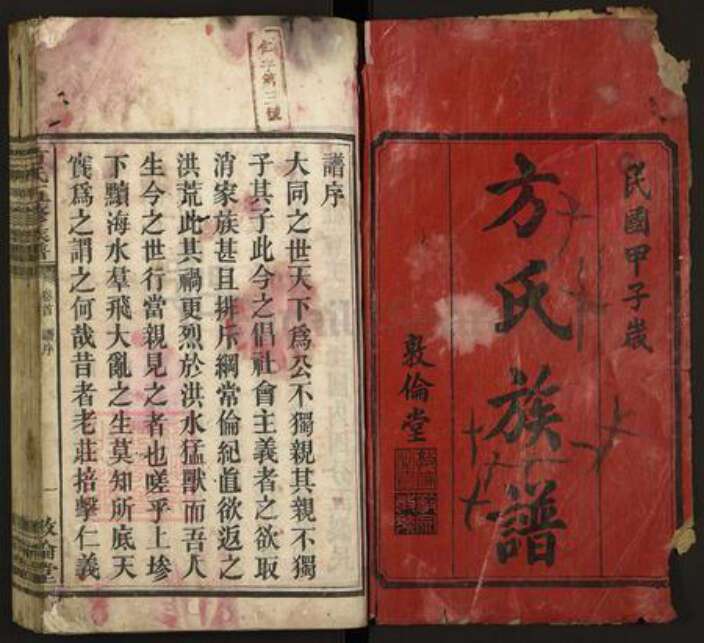 民國甲子歲
方氏族譜
敦倫堂
仁字第三號
譜序
大同之世天下爲公不獨親其親不獨
子其子此今之倡社會主義者之欲取
消家族甚且排斥綱常倫紀直欲返之
洪荒此其禍更烈於洪水猛獸而吾人
生今之世行當親見之者也嗟乎上墋
下黷海水羣飛大亂之生莫知所底天
實爲之謂之何哉昔者老莊掊擊仁義
卷首 譜序
一
敦倫堂